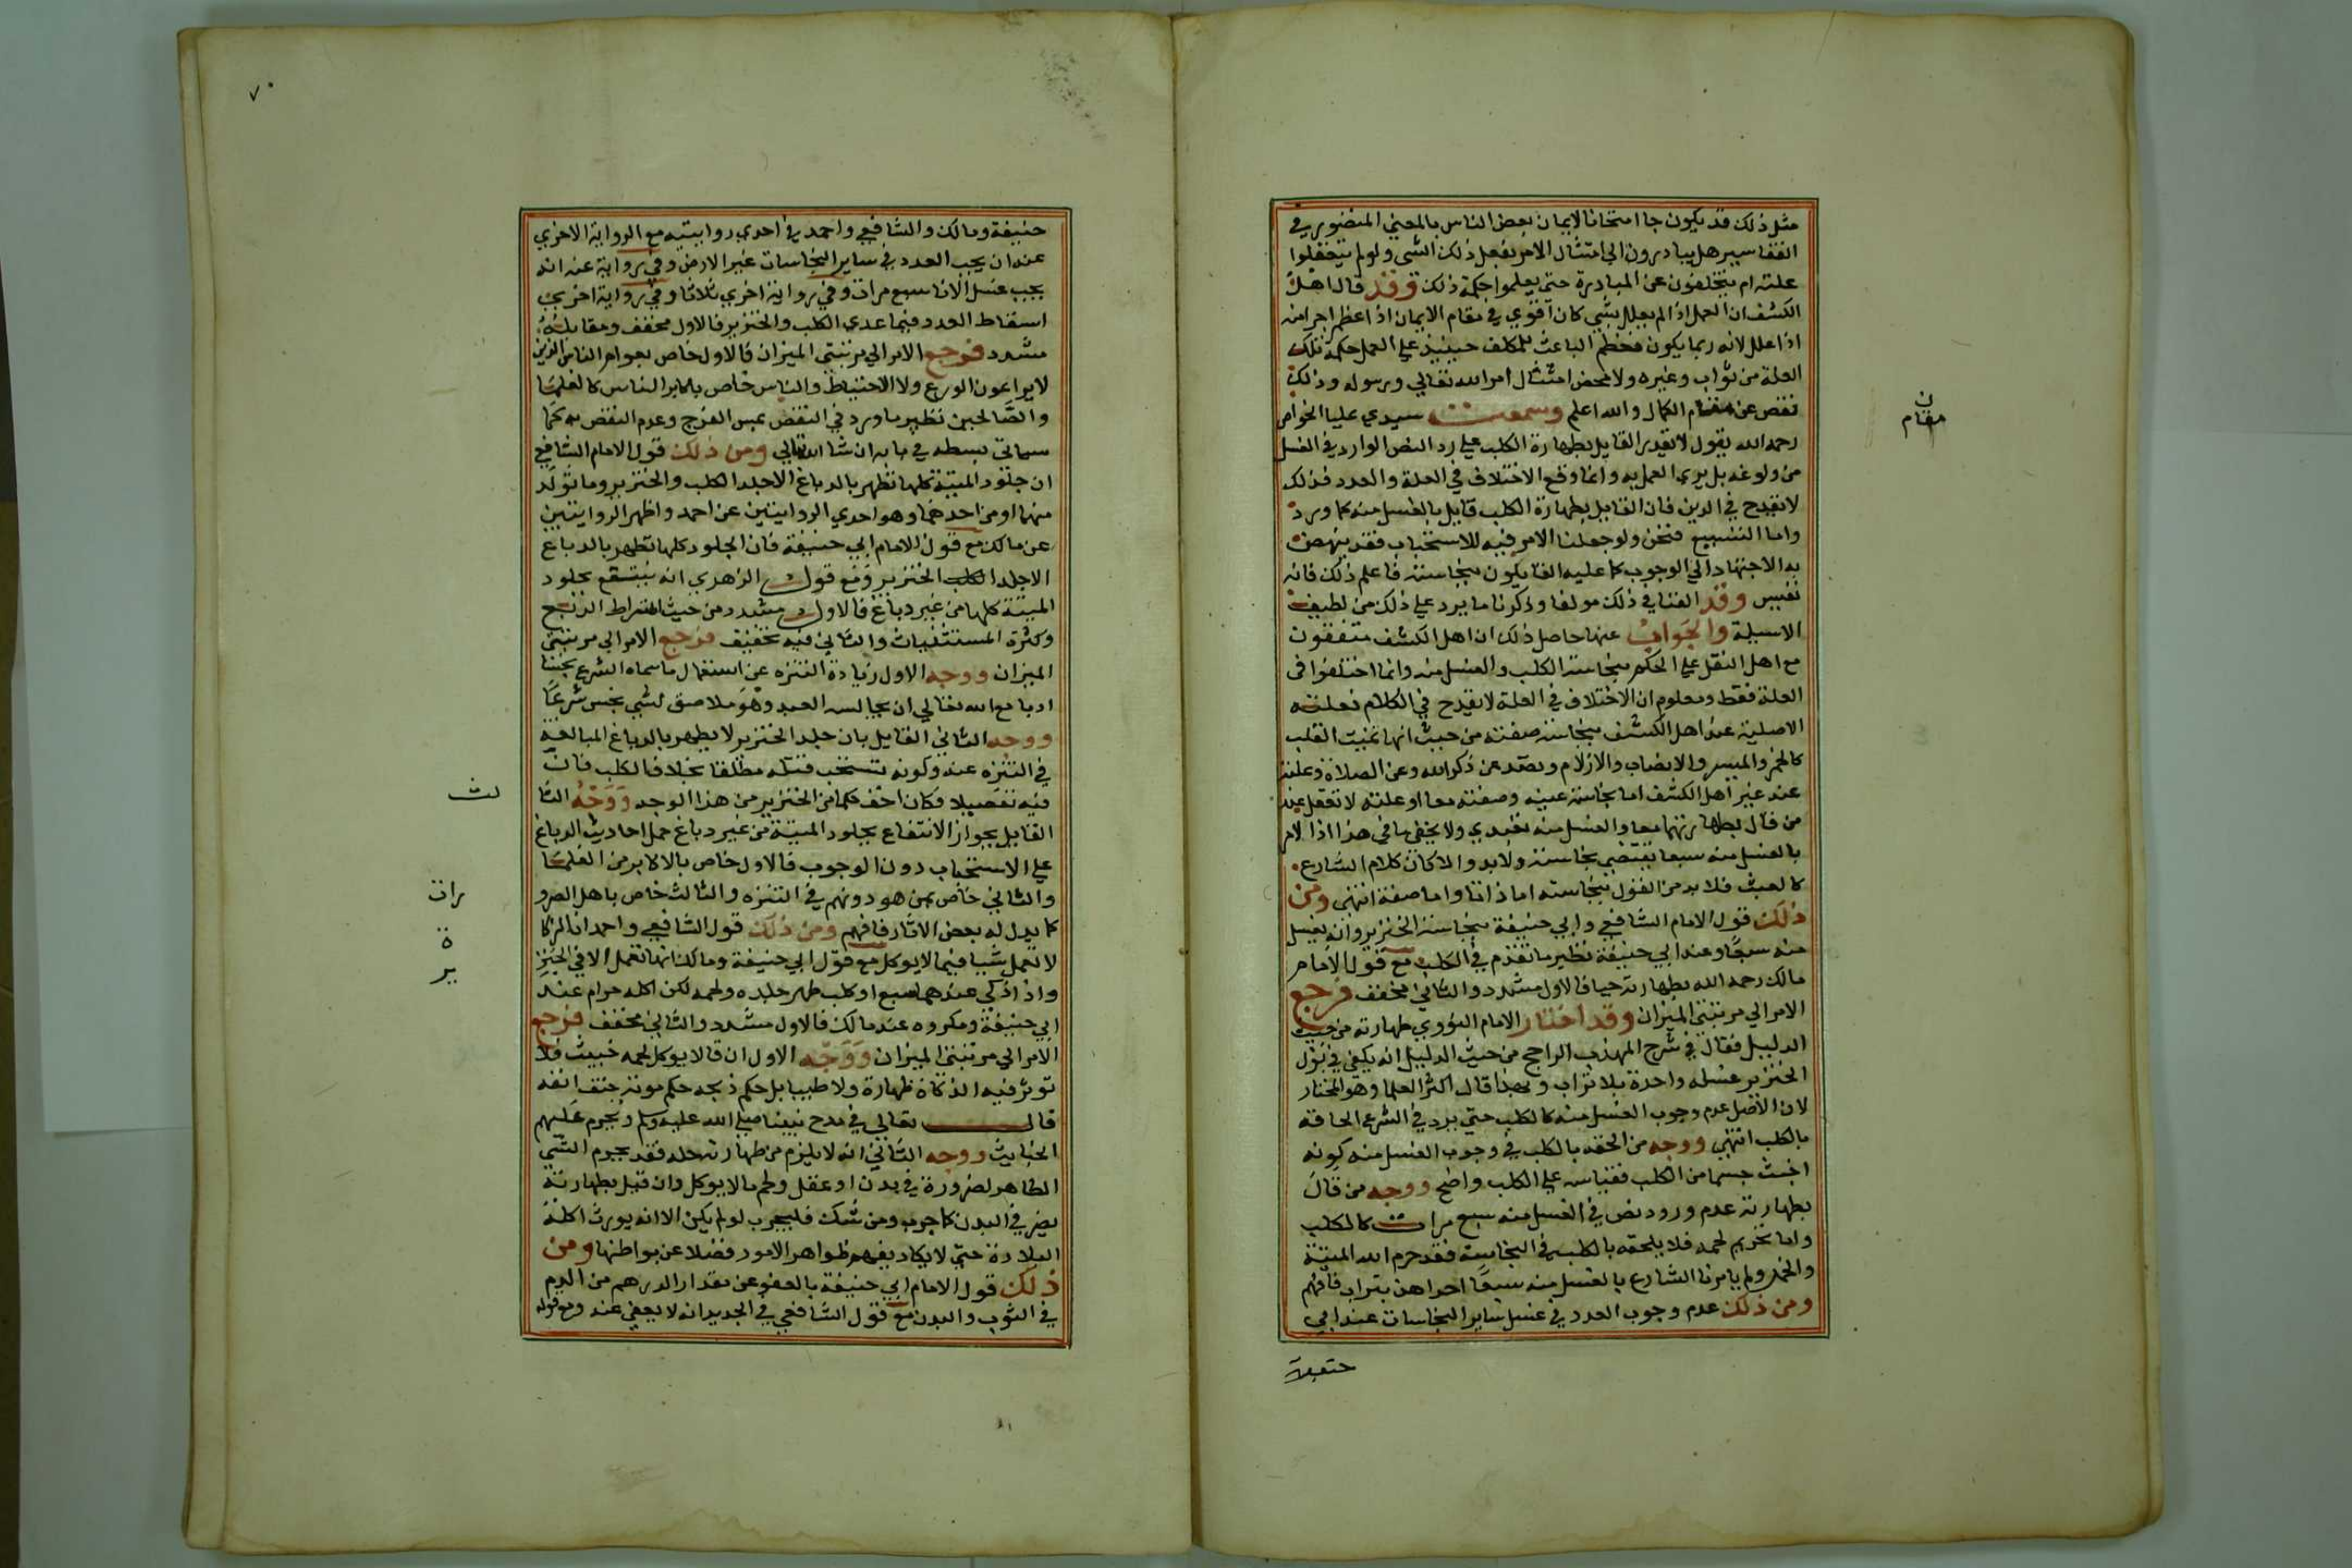 مثل ذلك قد يكون جا امتحانا لايمان بعض الناس بالمعني المنضوري في
علته ام يتخلفون عن المبادرة حتي يعلموا حكمة ذلك وقد قال اهل
الكشف ان العمل اذا لم يعلل بشي كان اقوي في مقام الايمان اذا اعظم اجرا منه
اذا علل لانه ربما يكون معظم الباعث للمكلف حينيذ علي العمل حكمة تلك
العلة من ثواب وغيره ولا محض امتثال امر الله تعالي ورسوله وذلك
نقص عن مقام الكمال والله اعلم وسمعت سيدي عليا الخواص
رحمه الله يقول لا يقدر القايل بطهارة الكلب علي رد النص الوارد في الغسل
من ولوغه بل يري العمل به وانما وقع الاختلاف في العلة والعدد فذلك
لا يقدح في الدين فان القايل بطهارة الكلب قايل بالغسل منه كما ورد
واما التسبيع فنحن ولو جعلنا الامر فيه للاستحباب فقد ينهض
به الاجتهاد الي الوجوب كما عليه القايلون بنجاسته فاعلم ذلك فانه
نفيس وقد الفنا في ذلك مولفا وذكرنا ما يرد علي ذلك من لطيف
الاسيلة والجواب عنها حاصل ذلك ان اهل الكشف متفقون
مع اهل النقل علي الحكم بنجاسة الكلب والغسل منه وانما اختلفوا في
العلة فقط ومعلوم ان الاختلاف في العلة لا يقدح في الكلام فعلته
الاصلية عند اهل الكشف نجاسة صفته من حيث انها تميت القلب
كالخمر والميسر والانصاب والازلام وتصد عن ذكر الله وعن الصلاة وعلته
عند غير اهل الكشف اما نجاسة عينه وصفته معا او علته لا تعقل عند
من قال بطهارتهما معا والغسل منه تعبدي ولا يخفي ما في هذا اذا لامر
بالغسل منه سبعا يقتضي نجاسته ولا بد والا كان كلام الشارع
كالعبث فلا بد من القول بنجاسته اما ذاتا واما صفة انتهي ومن
ذلك قول الامام الشافعي وابي حنيفة بنجاسة الخنزير وانه يغسل
منه سبعا وعند ابي حنيفة نظير ما تقدم في الكلب مع قول الامام
مالك رحمه الله بطهارته حيا فالاول مشدد والثاني مخفف فرجع
الامر الي مرتبتي الميزان وقد اختار الامام النووي طهارته من حيث
الدليل فقال في شرح المهذب الراجح من حيث الدليل انه يكفي في بول
الخنزير غسلة واحدة بلا تراب وبهذا قال اكثر العلما وهو المختار
لان الاصل عدم وجوب الغسل منه كالكلب حتي يرد في الشرع الحاقه
بالكلب انتهي ووجه من الحقه بالكلب في وجوب الغسل منه كونه
اخبث جسما من الكلب فقياسه علي الكلب واضح ووجه من قال
بطهارته عدم ورود نص في الغسل منه سبع مرات كالكلب
واما تحريم لحمه فلا يلحقه بالكلب في النجاسة فقد حرم الله الميتة
والخمر ولم يامرنا الشارع بالغسل منه سبعا احداهن بتراب فافهم
ومن ذلك عدم وجوب العدد في غسل ساير النجاسات عند ابي
ن
مقام
٧٠
حنيفة ومالك والشافعي واحمد في احدي روايتيه مع الرواية الاخري
عنه ان يجب العدد في ساير النجاسات غير الارض وفي رواية عنه انه
يجب غسل الانا سبع مرات وفي رواية اخري ثلاثا وفي رواية اخري
اسقاط العدد فيما عدي الكلب والخنزير فالاول مخفف ومقابله
مشدد فرجع الامر الي مرتبتي الميزان فالاول خاص بعوام الناس الذين
لا يراعون الورع ولا الاحتياط والناس خاص باكابر الناس كالعلما
والصالحين نظير ما ورد في النقض بمس الفرج وعدم النقض به كما
سياتي بسطه في بابه ان شا الله تعالي ومن ذلك قول الامام الشافعي
ان جلود الميتة كلها تطهر بالدباغ الا جلد الكلب والخنزير وما تولد
منهما او من احدهما وهو احدي الروايتين عن احمد واظهر الروايتين
عن مالك مع قول الامام ابي حنيفة فان الجلود كلها تطهر بالدباغ
الا جلد الكلب الخنزير ومع قول الزهري انه ينتفع بجلود
الميتة كلها من غير دباغ فالاول مشدد من حيث اشتراط الذبح
وكثرة المستثنيات والثاني فيه تخفيف فرجع الامر الي مرتبتي
الميزان ووجه الاول زيادة التنزه عن استعمال ما سماه الشرع نجسا
ادبا مع الله تعالي ان يجالسه العبد وهو ملاصق لشي نجس شرعا
ووجه الثاني القايل بان جلد الخنزير لا يطهر بالدباغ المبالغة
في التنزه عنه وكونه تستحب قتله مطلقا بخلاف الكلب فان
فيه تفصيلا فكان اخف حكما من الخنزير من هذا الوجه ووجه الثا
القايل بجواز الانتفاع بجلود الميتة من غير دباغ حمل احاديث الدباغ
علي الاستحباب دون الوجوب فالاول خاص بالاكابر من العلما
والثاني خاص بمن هو دونهم في التنزه والثالث خاص باهل الضرو
كما يدل له بعض الاثار فافهم ومن ذلك قول الشافعي واحمد ان الزكا
لا تعمل شيا فيما لا يوكل مع قول ابي حنيفة ومالك انها تعمل الا في الخنز
واذا ذكي عندهما سبع او كلب طهر جلده ولحمه لكن اكله حرام عند
ابي حنيفة ومكروه عند مالك فالاول مشدد والثاني مخفف فرجع
الامر الي مرتبتي الميزان ووجه الاول ان ما لا يوكل لحمه خبيث فلا
توثر فيه الذكاة طهارة ولا طيبا بل حكم ذبحه حكم موته حتف انفه
قال تعالي في مدح نبينا صلي الله عليه وسلم ويحرم عليهم
الخبايث ووجه الثاني انه لا يلزم من طهارته حله فقد يحرم الشي
الطاهر لضرورة في بدن او عقل ولحم ما لا يوكل وان قيل بطهارته
يضر في البدن كما جرب ومن شك فليجرب لو لم يكن الا انه يورث اكله
البلادة حتي لا يكاد يفهم ظواهر الامور فضلا عن بواطنها ومن
ذلك قول الامام ابي حنيفة بالعفو عن مقدار الدرهم من الدم
في الثوب والبدن مع قول الشافعي في الجديد انه لا يعفي عنه ومع قوله
لث
رات
ة
ير